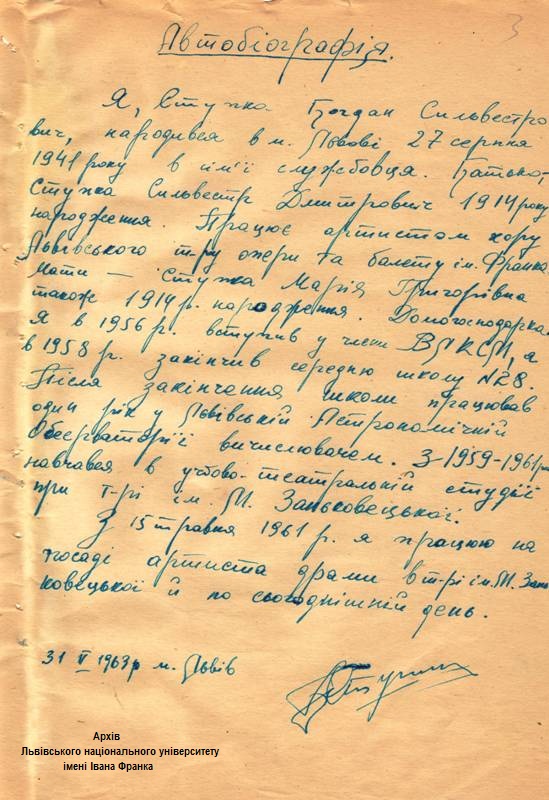 3
Автобіографія.
Я, Ступка Богдан Сильвестро
вич, народився в м. Львові 27 серпня
1941 року в сім'ї службовця. Батько,
Ступка Сильвестр Дмитрович 1914 року
народження. Працює артистом хору
Львівського т-ру опери та балету ім. Франка
Мати — Ступка Марія Григорівна
також 1914 р. народження. Домогосподарка.
Я в 1956 р. вступив у члени ВЛКСМ, а
в 1958 р. закінчив середню школу №28.
Після закінчення школи працював
один рік у Львівській Астрономічній
Обсерваторії вичислювачем. З 1959-1961 рр
навчався в учбово-театральній студії
при т-рі ім. М. Заньковецької.
З 15 травня 1961 р. я працюю на
посаді артиста драми в т-рі ім. М. Зань
ковецької й по сьогоднішній день.
31 V 1963 р м. Львів
Архів
Львівського національного університету
імені Івана Франка